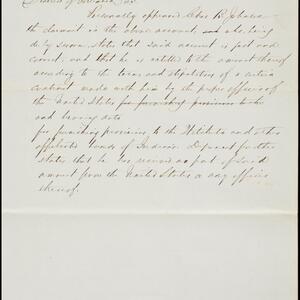 Personally appeared Chas B. Johnson
the claimant in the above account, who being
duly sworn states that said account is just and
correct, and that he is entitled to the amount thereof
according to the terms and stipulations of a certain
contract made with him by the proper officers of
the United States for furnishing provisions to the
and bearing date
for furnishing provisions, to the Wichita and other
affiliated bands of Indians. Deponent further
states that he has received no part of said
amount from the United States or any officer
thereof.